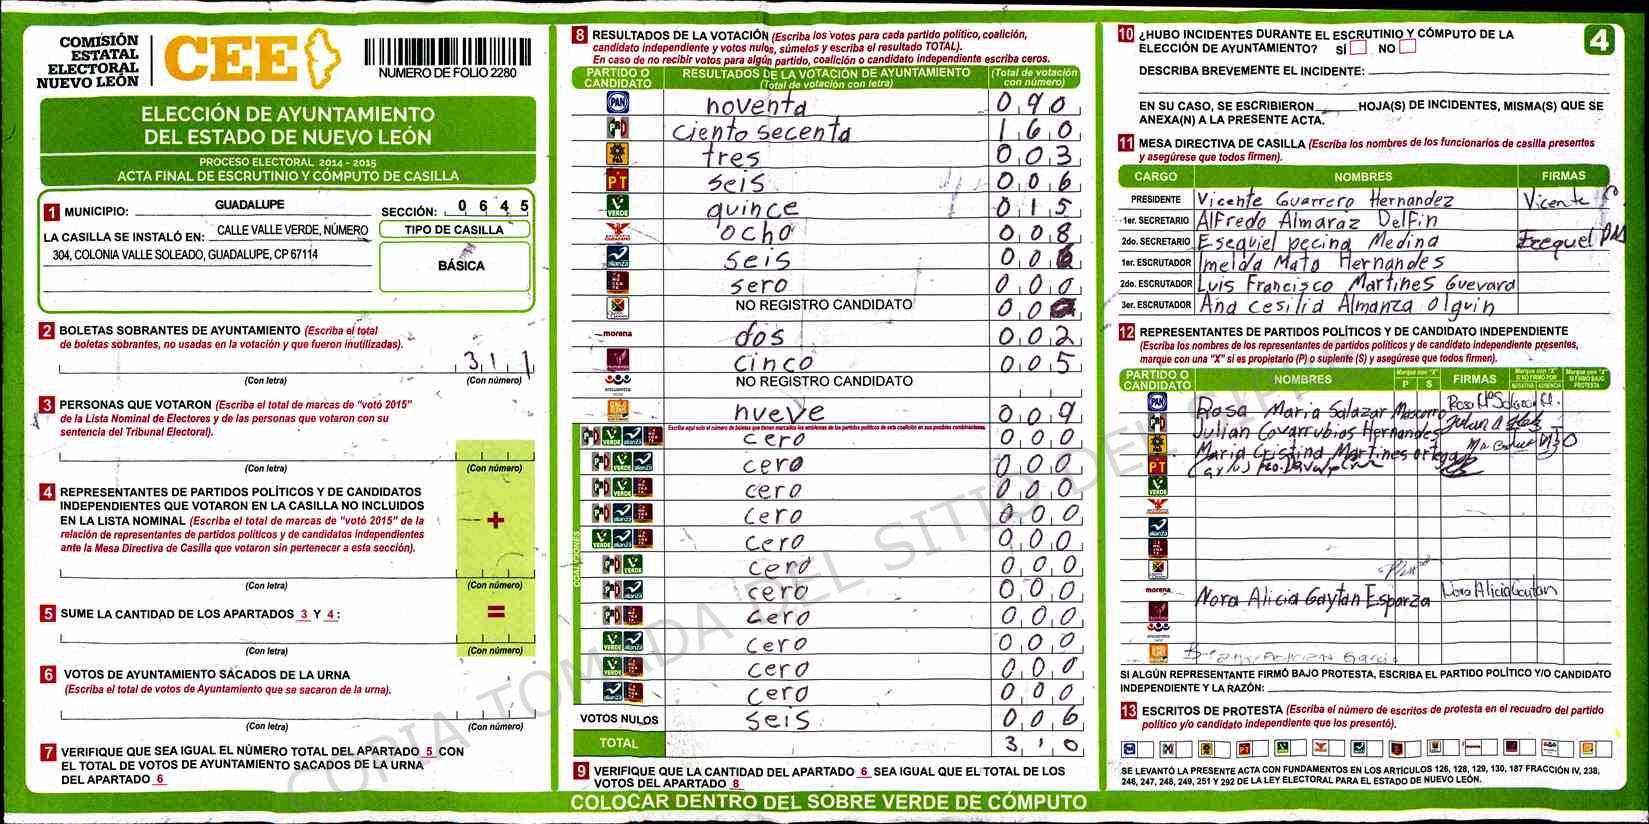 COMISIÓN
ESTATAL
ELECTORAL
NUEVO LEÓN
CEE
NUMERO DE FOLIO 2280
ELECCIÓN DE AYUNTAMIENTO
DEL ESTADO DE NUEVO LEÓN
PROCESO ELECTORAL 2014 - 2015
ACTA FINAL DE ESCRUTINIO Y CÓMPUTO DE CASILLA
1 MUNICIPIO: GUADALUPE
SECCIÓN: 0 6 4 5
LA CASILLA SE INSTALÓ EN: CALLE VALLE VERDE, NÚMERO
304, COLONIA VALLE SOLEADO, GUADALUPE, CP 67114
TIPO DE CASILLA
BÁSICA
2 BOLETAS SOBRANTES DE AYUNTAMIENTO (Escriba el total
de boletas sobrantes, no usadas en la votación y que fueron inutilizadas).
3 1 1
(Con letra) (Con número)
3 PERSONAS QUE VOTARON (Escriba el total de marcas de "votó 2015"
de la Lista Nominal de Electores y de las personas que votaron con su
sentencia del Tribunal Electoral).
(Con letra) (Con número)
4 REPRESENTANTES DE PARTIDOS POLÍTICOS Y DE CANDIDATOS
INDEPENDIENTES QUE VOTARON EN LA CASILLA NO INCLUIDOS
EN LA LISTA NOMINAL (Escriba el total de marcas de "votó 2015" de la
relación de representantes de partidos políticos y de candidatos independientes
ante la Mesa Directiva de Casilla que votaron sin pertenecer a esta sección).
+
(Con letra) (Con número)
5 SUME LA CANTIDAD DE LOS APARTADOS 3 Y 4 :
=
(Con letra) (Con número)
6 VOTOS DE AYUNTAMIENTO SACADOS DE LA URNA
(Escriba el total de votos de Ayuntamiento que se sacaron de la urna).
(Con letra) (Con número)
7 VERIFIQUE QUE SEA IGUAL EL NÚMERO TOTAL DEL APARTADO 5 CON
EL TOTAL DE VOTOS DE AYUNTAMIENTO SACADOS DE LA URNA
DEL APARTADO 6
8 RESULTADOS DE LA VOTACIÓN (Escriba los votos para cada partido político, coalición,
candidato independiente y votos nulos, súmelos y escriba el resultado TOTAL).
En caso de no recibir votos para algún partido, coalición o candidato independiente escriba ceros.
PARTIDO O CANDIDATO
RESULTADOS DE LA VOTACIÓN DE AYUNTAMIENTO
(Total de votación con letra)
(Total de votación con número)
PAN noventa 0 9 0
PRI ciento secenta 1 6 0
PRD tres 0 0 3
PT seis 0 0 6
VERDE quince 0 1 5
ocho 0 0 8
alianza seis 0 0 6
sero 0 0 0
NO REGISTRO CANDIDATO 0 0
morena dos 0 0 2
cinco 0 0 5
encuentro NO REGISTRO CANDIDATO
nueve 0 0 9
Escriba aquí solo el número de boletas que tienen marcados los emblemas de los partidos políticos de esta coalición en sus posibles combinaciones.
COALICIONES
cero 0 0 0
cero 0 0 0
cero 0 0 0
cero 0 0 0
cero 0 0 0
cero 0 0 0
cero 0 0 0
cero 0 0 0
cero 0 0 0
cero 0 0 0
cero 0 0 0
VOTOS NULOS seis 0 0 6
TOTAL 3 1 0
9 VERIFIQUE QUE LA CANTIDAD DEL APARTADO 6 SEA IGUAL QUE EL TOTAL DE LOS
VOTOS DEL APARTADO 8
COLOCAR DENTRO DEL SOBRE VERDE DE CÓMPUTO
10 ¿HUBO INCIDENTES DURANTE EL ESCRUTINIO Y CÓMPUTO DE LA
ELECCIÓN DE AYUNTAMIENTO? SÍ NO
4
DESCRIBA BREVEMENTE EL INCIDENTE:
EN SU CASO, SE ESCRIBIERON HOJA(S) DE INCIDENTES, MISMA(S) QUE SE
ANEXA(N) A LA PRESENTE ACTA.
11 MESA DIRECTIVA DE CASILLA (Escriba los nombres de los funcionarios de casilla presentes
y asegúrese que todos firmen).
CARGO NOMBRES FIRMAS
PRESIDENTE Vicente Guerrero Hernandez Vicente
1er. SECRETARIO Alfredo Almaraz Delfin
2do. SECRETARIO Esequiel pecina Medina Ezequel
1er. ESCRUTADOR Imelda Mata Hernandes
2do. ESCRUTADOR Luis Francisco Martines Guevara
3er. ESCRUTADOR Ana Cesilia Almanza Olguin
12 REPRESENTANTES DE PARTIDOS POLÍTICOS Y DE CANDIDATO INDEPENDIENTE
(Escriba los nombres de los representantes de partidos políticos y de candidato independiente presentes,
marque con una "X" si es propietario (P) o suplente (S) y asegúrese que todos firmen).
PARTIDO O CANDIDATO NOMBRES Marque con "X" P S FIRMAS Marque con "X" SI NO FIRMÓ POR NEGATIVA AUSENCIA Marque con "X" SI FIRMÓ BAJO PROTESTA
PAN Rosa Maria Salazar Mascorro
Julian Covarrubias Hernandes
Maria Cristina Martines ortega
PT
VERDE
morena
Nora Alicia Gaytan Esparza Nora Alicia Gaytan
SI ALGÚN REPRESENTANTE FIRMÓ BAJO PROTESTA, ESCRIBA EL PARTIDO POLÍTICO Y/O CANDIDATO
INDEPENDIENTE Y LA RAZÓN:
13 ESCRITOS DE PROTESTA (Escriba el número de escritos de protesta en el recuadro del partido
político y/o candidato independiente que los presentó).
SE LEVANTÓ LA PRESENTE ACTA CON FUNDAMENTOS EN LOS ARTÍCULOS 126, 128, 129, 130, 187 FRACCIÓN IV, 238,
246, 247, 248, 249, 251 Y 292 DE LA LEY ELECTORAL PARA EL ESTADO DE NUEVO LEÓN.
COPIA TOMADA DEL SITIO DEL